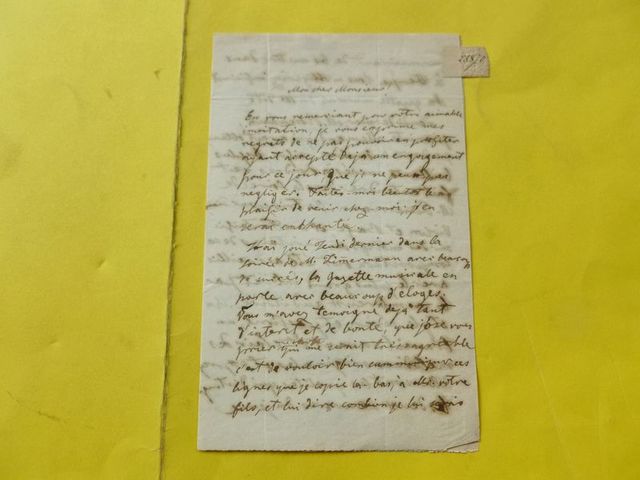 Mon cher Monsieur
En vous remerciant pour votre aimable
invitation, je vous exprime mes
regrets de ne pas pouvoir en profiter
ayant accepté déjà un engagement
pour ce jour que je ne peux pas
négliger. Faites-moi bientôt le
plaisir de venir chez moi; j'en
serai enchanté.
J'ai joué Jeudi dernier dans la
soirée de M. Zimermann avec beaucoup
de succés, la Gazette musicale en
parle avec beaucoup d'éloges.
Vous m'avez temoigné déjà tant
d'interet et de bonté, que j'ose vous
prier qui me serait très agréable
c'est de vouloir bien communiquer ces
lignes que je copie au bas, à votre
fils, et lui dire combien je lui serais